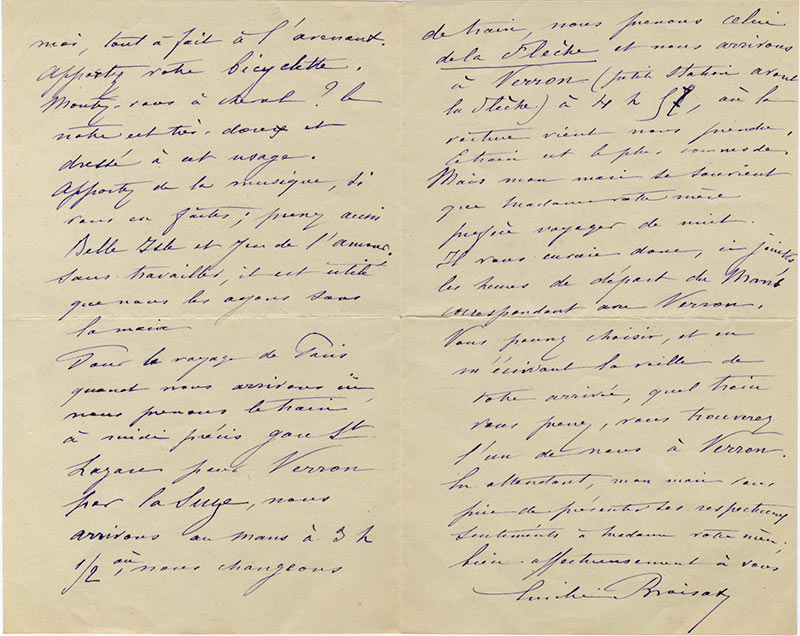 moi, tout à fait à l'avenant.
Apportez votre bicyclette.
Montez-vous à cheval? le
nôtre est très-doux et
dressé à cet usage.
Apportez de la musique, si
vous en faites; prenez aussi
Belle Isle et Jeu de l'amour.
sans travailler, il est utile
que nous les ayons sous
la main
Pour le voyage de Paris
quand nous arrivons ici
nous prenons le train
à midi précis gare St
Lazare pour Verron
par la Suze, nous
arrivons au Mans à 3 h
1/2 où, nous changeons
de train, nous prenons celui
de la Flèche et nous arrivons
à Verron (petite station avant
la Flèche) à 4 h 57, où la
voiture vient nous prendre,
ce train est le plus commode.
Mais mon mari se souvient
que madame votre mère
préfère voyager de nuit.
Il vous envoie donc, ci joints,
les heures de départ du Mans
correspondant avec Verron.
Vous pouvez choisir, et en
m'écrivant la veille de
votre arrivée, quel train
vous prenez, vous trouverez
l'un de nous à Verron.
En attendant, mon mari vous
prie de présenter ses respectueux
sentiments à madame votre mère,
bien affectueusement à vous
Emilie Broisat